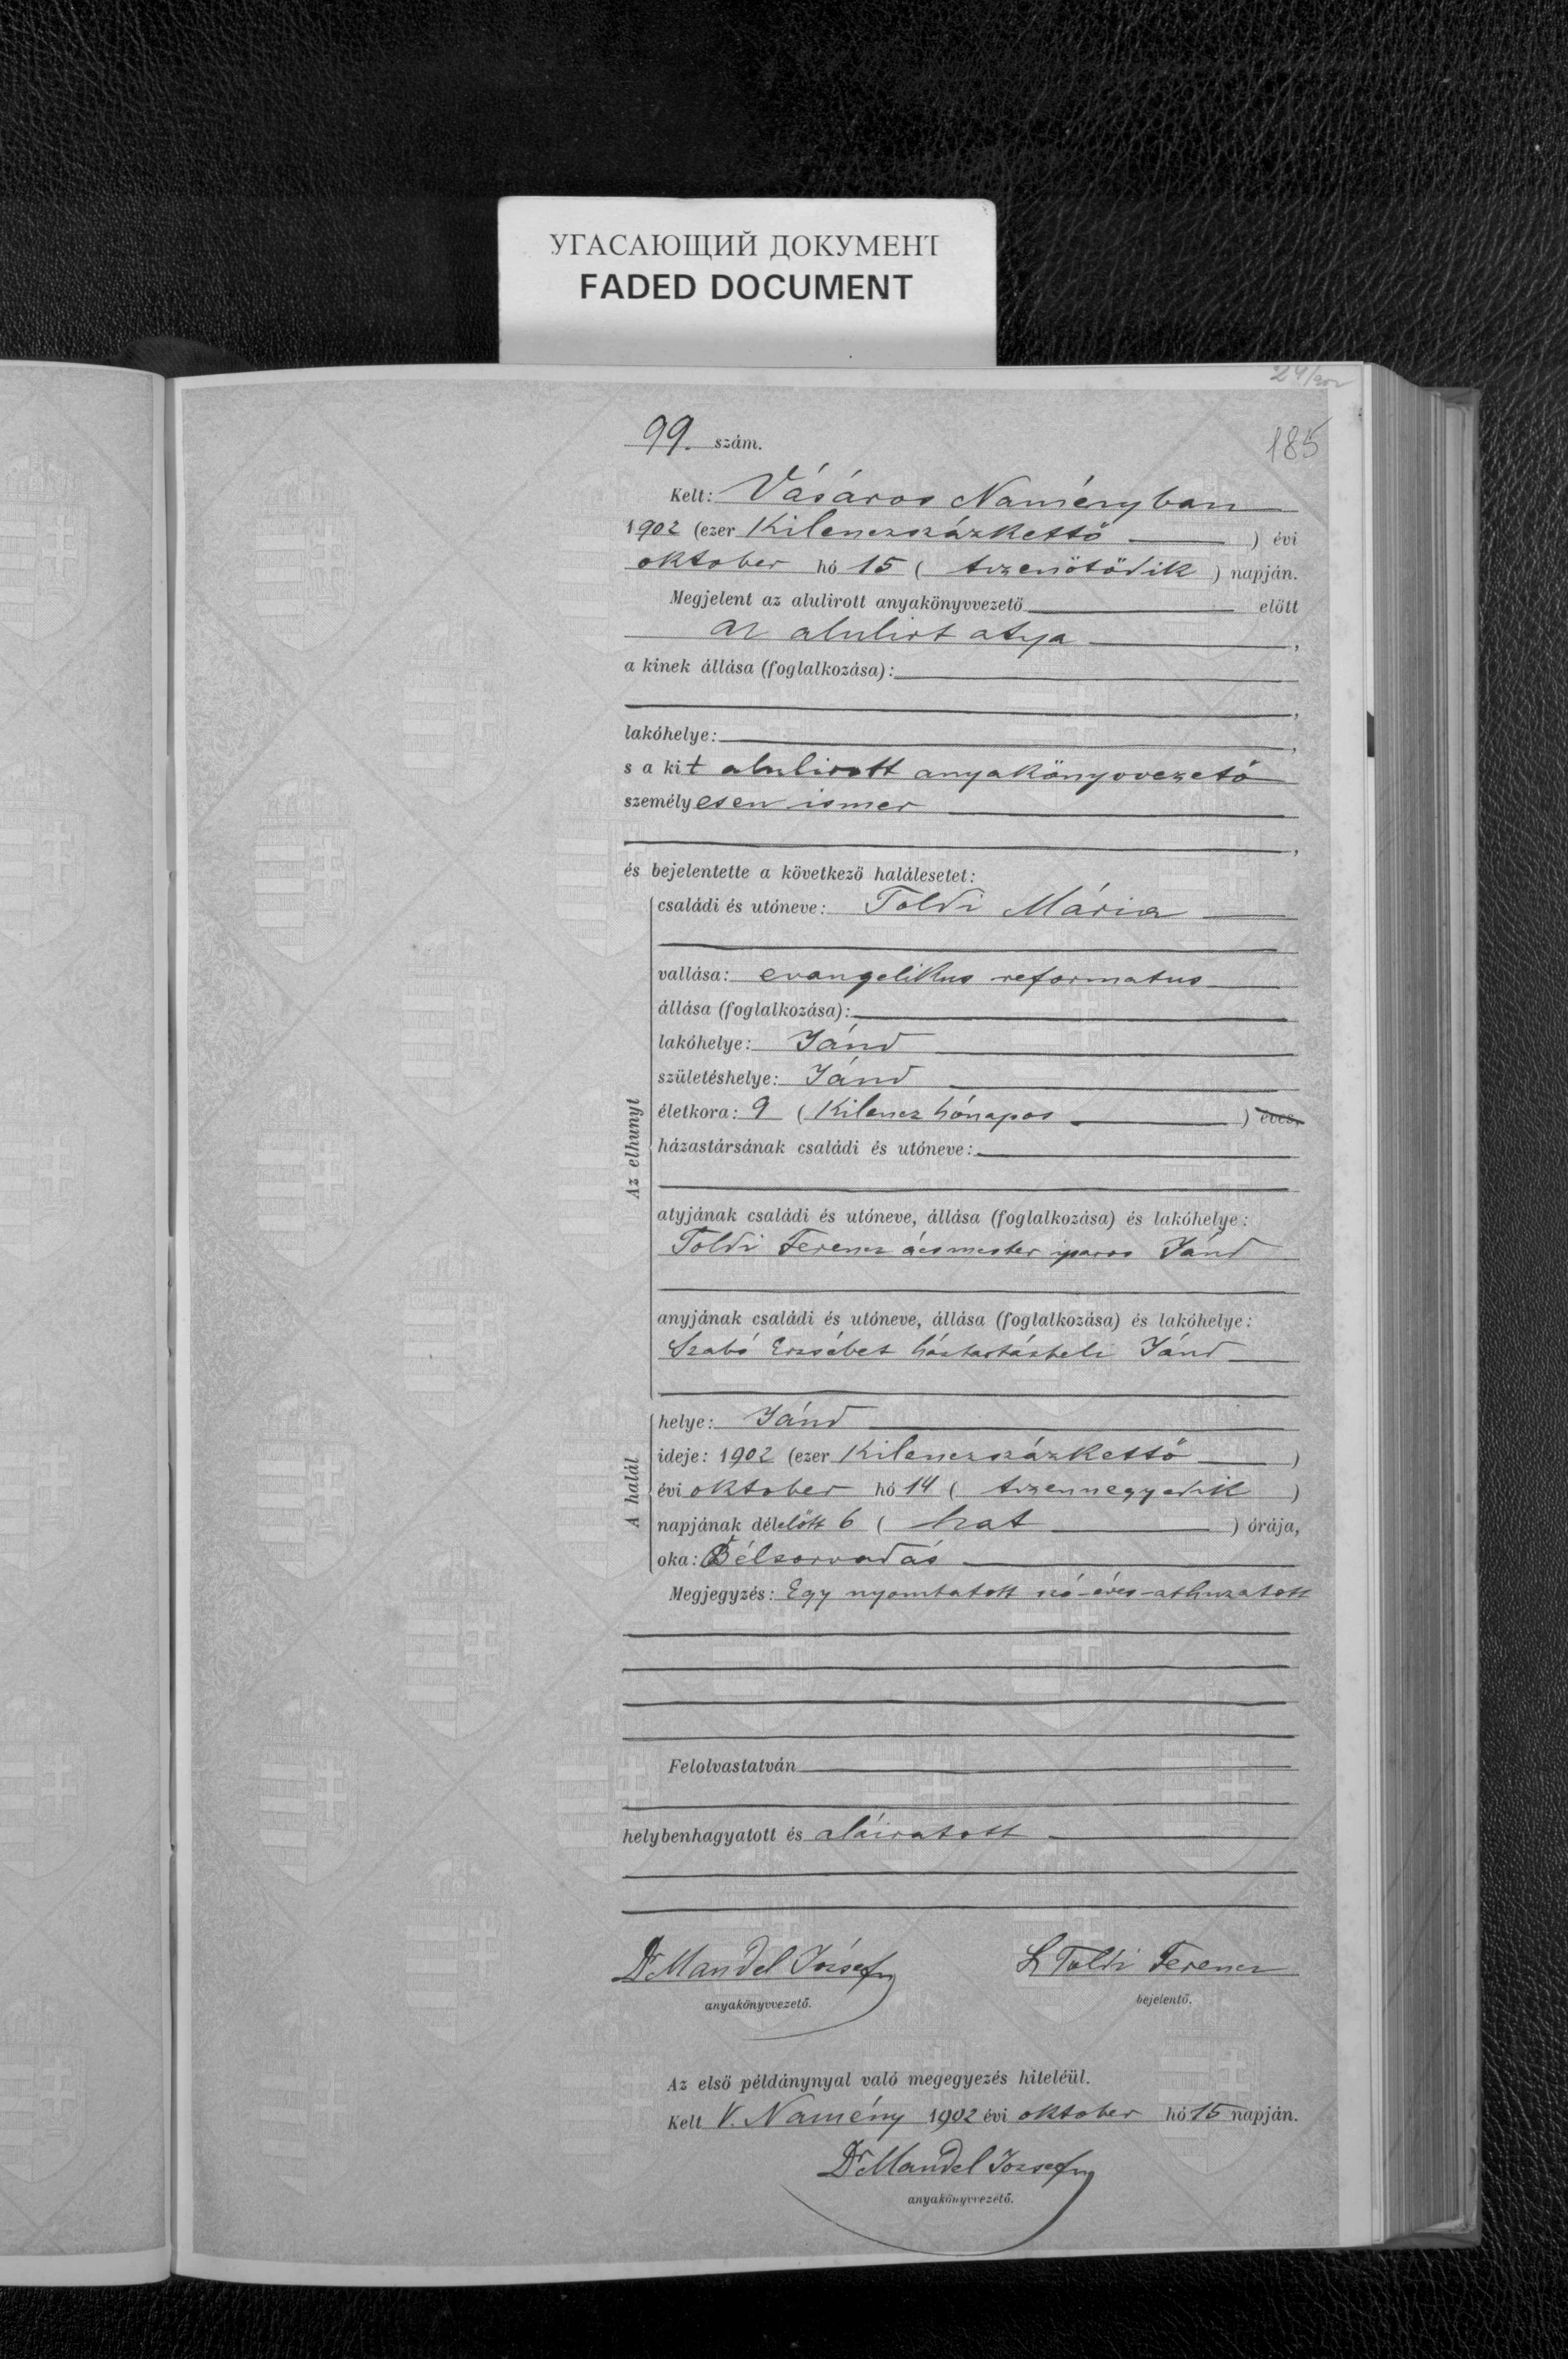 УГАСАЮЩИЙ ДОКУМЕНТ
FADED DOCUMENT
24/902
185
99. szám.
Kelt: Vásáros Naményban
1902 (ezer Kilenczszázkettő) évi
oktober hó 15 (tizenötödik) napján.
Megjelent az alulirott anyakönyvvezető előtt
az alulirt atya,
a kinek állása (foglalkozása):
lakóhelye:
s a kit alulirott anyakönyvvezető
személyesen ismer
és bejelentette a következő halálesetet:
Az elhunyt
családi és utóneve: Toldi Mária
vallása: evangelikus reformatus
állása (foglalkozása):
lakóhelye: Jánd
születéshelye: Jánd
életkora: 9 (Kilencz hónapos) éves.
házastársának családi és utóneve:
atyjának családi és utóneve, állása (foglalkozása) és lakóhelye:
Toldi Ferencz ácsmester iparos Jánd
anyjának családi és utóneve, állása (foglalkozása) és lakóhelye:
Szabó Erzsébet háztartásbeli Jánd
A halál
helye: Jánd
ideje: 1902 (ezer Kilenczszázkettő)
évi oktober hó 14 (tizennegyedik)
napjának délelőtt 6 (hat) órája,
oka: Bélsorvadás
Megjegyzés: Egy nyomtatott szó-éves-athuzatott
Felolvastatván
helybenhagyatott és aláiratott
Dr Mandel József
anyakönyvvezető.
Toldi Ferencz
bejelentő.
Az első példánynyal való megegyezés hiteléül.
Kelt V. Namény 1902 évi oktober hó 15 napján.
Dr Mandel József
anyakönyvvezető.